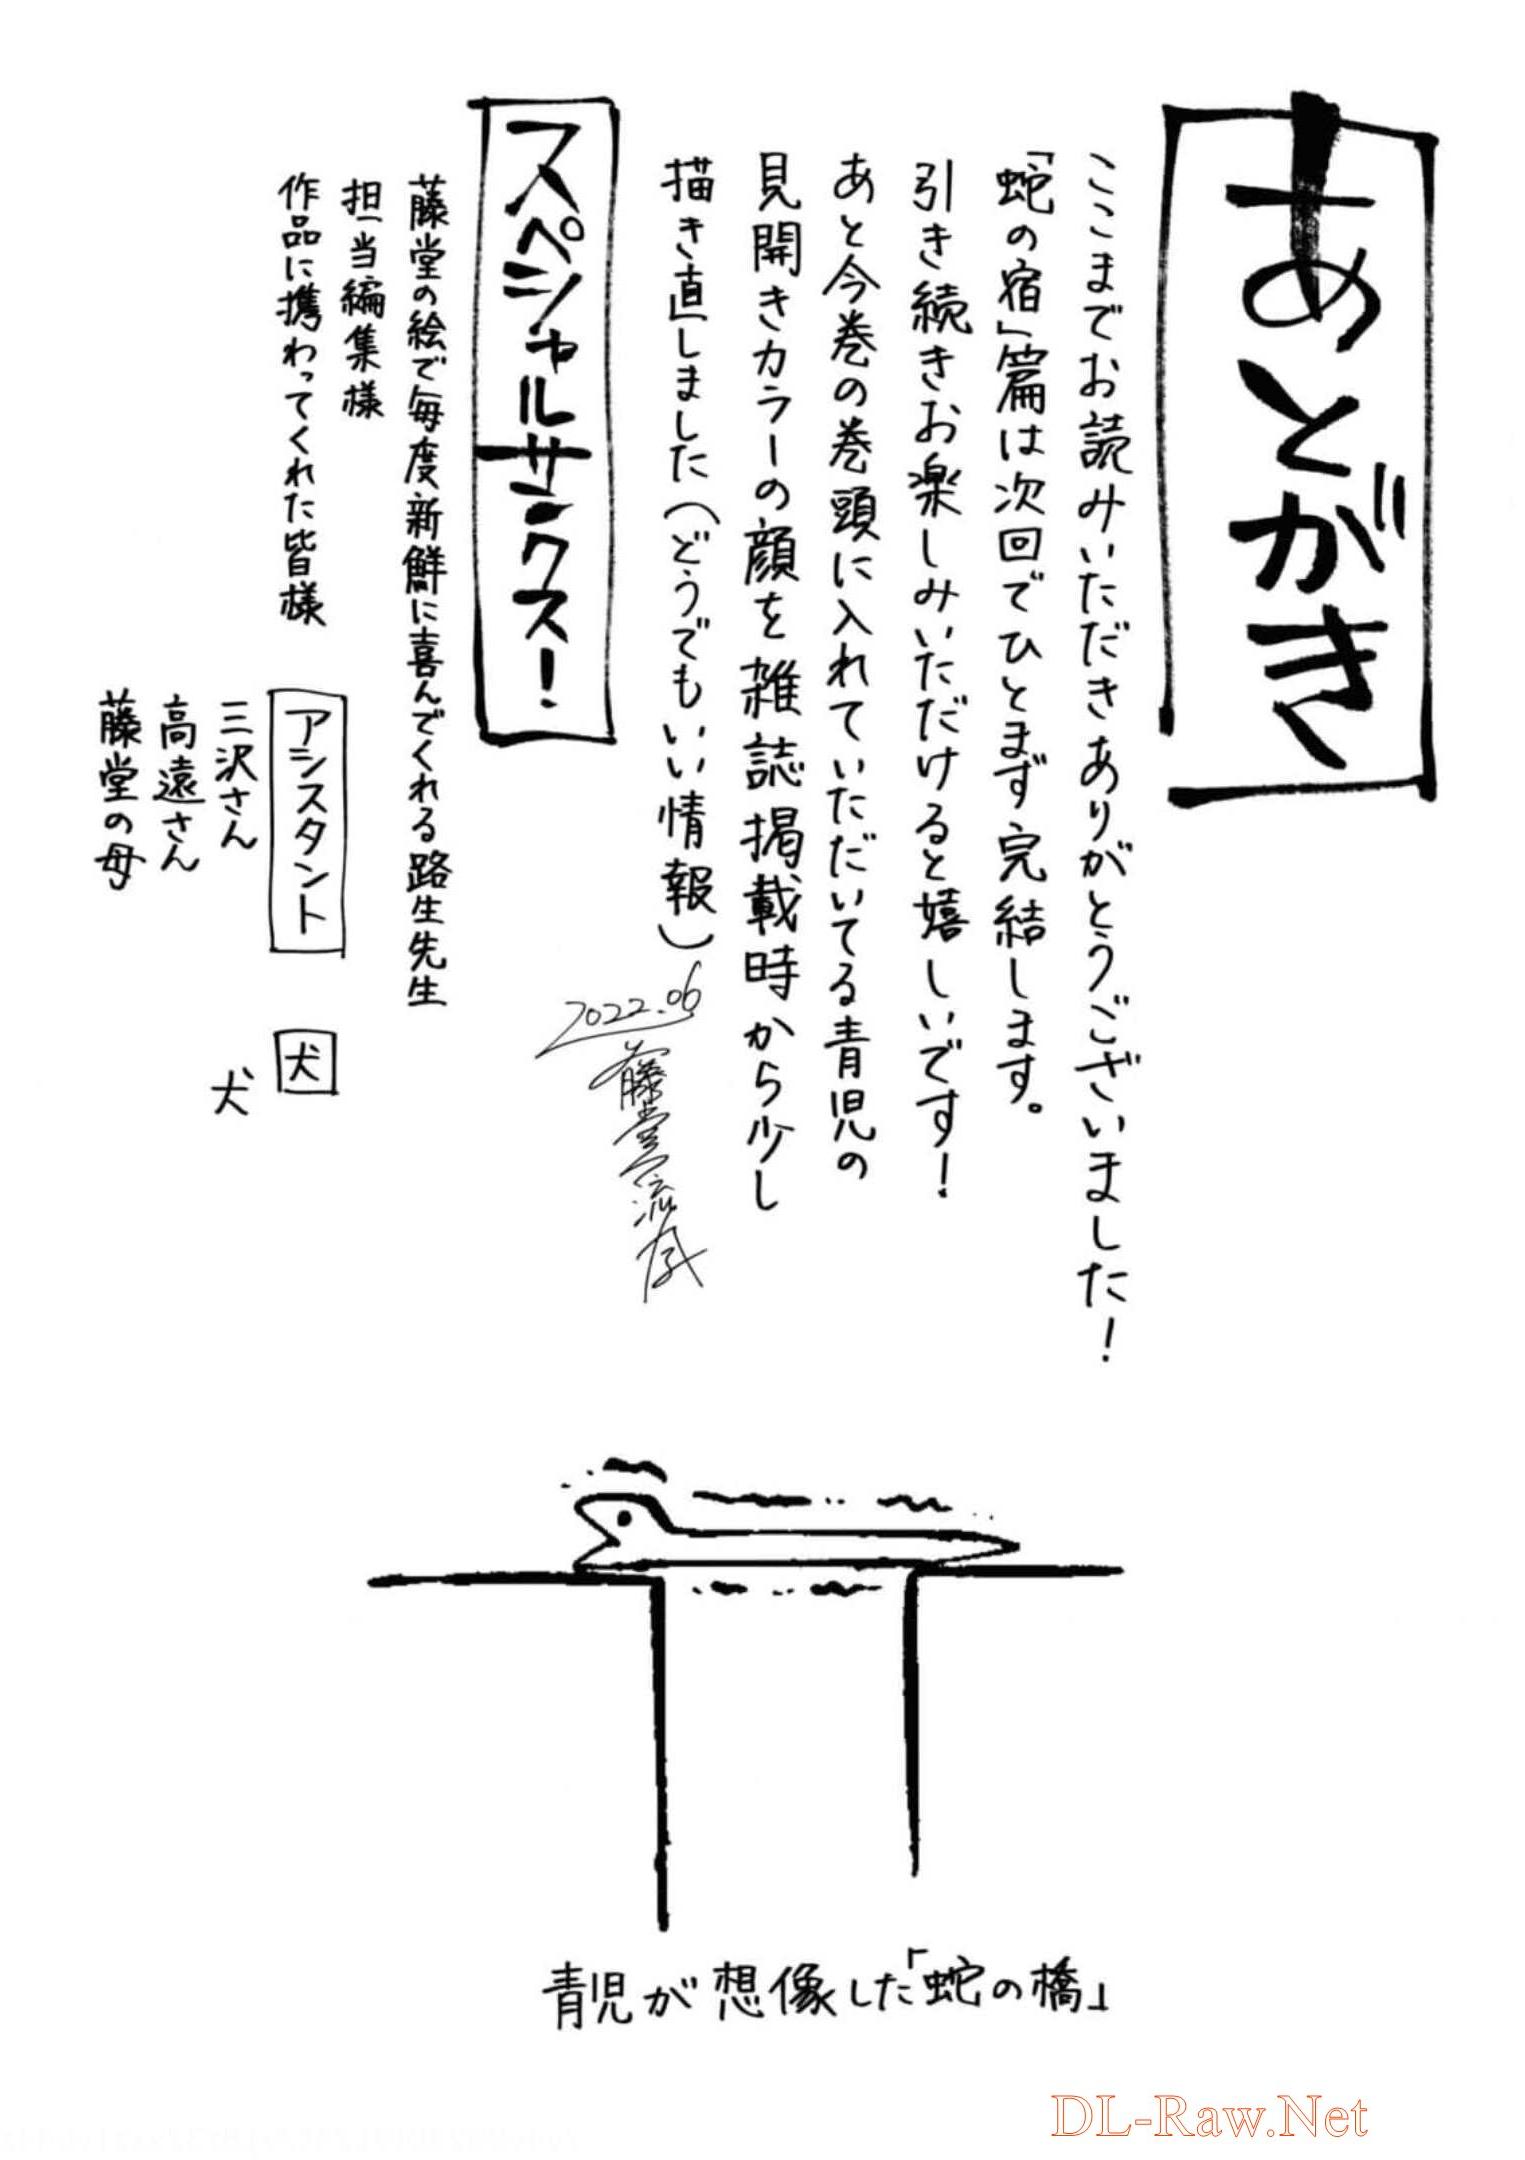 あとがき
ここまでお読みいただきありがとうございました！
「蛇の宿」篇は次回でひとまず完結します。
引き続きお楽しみいただけると嬉しいです！
あと今巻の巻頭に入れていただいてる青児の
見開きカラーの顔を雑誌掲載時から少し
描き直しました（どうでもいい情報）
2022.06
藤堂流風
スペシャルサンクス！
藤堂の絵で毎度新鮮に喜んでくれる路生先生
担当編集様
作品に携わってくれた皆様
アシスタント
三沢さん
高遠さん
藤堂の母
犬
犬
青児が想像した「蛇の橋」
DL-Raw.Net